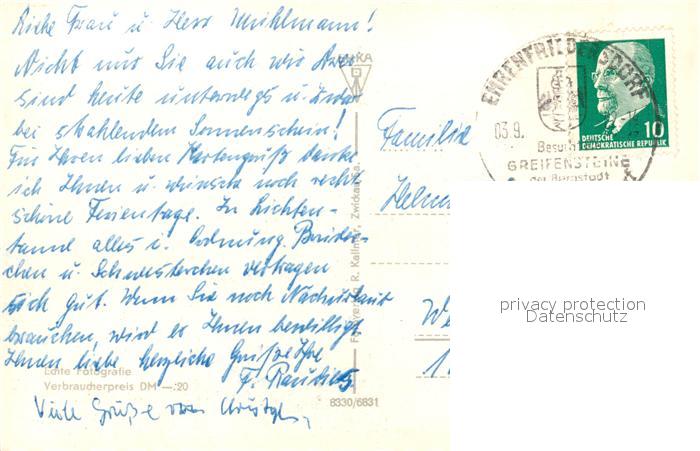 Liebe Frau u. Herr Mühlmann!
Nicht nur Sie auch wir
sind heute unterwegs u.
bei strahlendem Sonnenschein!
Für Ihren lieben Kartengruß danke
ich Ihnen u. wünsche noch recht
schöne Ferientage. In Lichten-
tanne alles i. Ordnung. Brüder-
chen u. Schwesterchen vertragen
sich gut. Wenn Sie noch Nachurlaub
brauchen, wird er Ihnen bewilligt
Ihnen liebe herzliche Grüße Ihre
F.
Viele Grüße von
Echte Fotografie
Verbraucherpreis DM —:20
8330/6831
R. Kallmer, Zwickau
Familie
EHRENFRIEDERSDORF
03.9.
Besucht
GREIFENSTEINE
der Bergstadt
10
DEUTSCHE
DEMOKRATISCHE REPUBLIK
privacy protection
Datenschutz